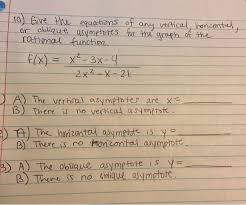 10) Give the equations of any vertical, horizontal,
or oblique asymptotes for the graph of the
rational function.
f(x) = x² - 3x - 4
2x² - x - 21
) A) The vertical asymptotes are x = ___
B) There is no vertical asymptote.
2) A) The horizontal asymptote is y = ___
B) There is no horizontal asymptote.
3) A) The oblique asymptote is y = ___
B) There is no oblique asymptote.